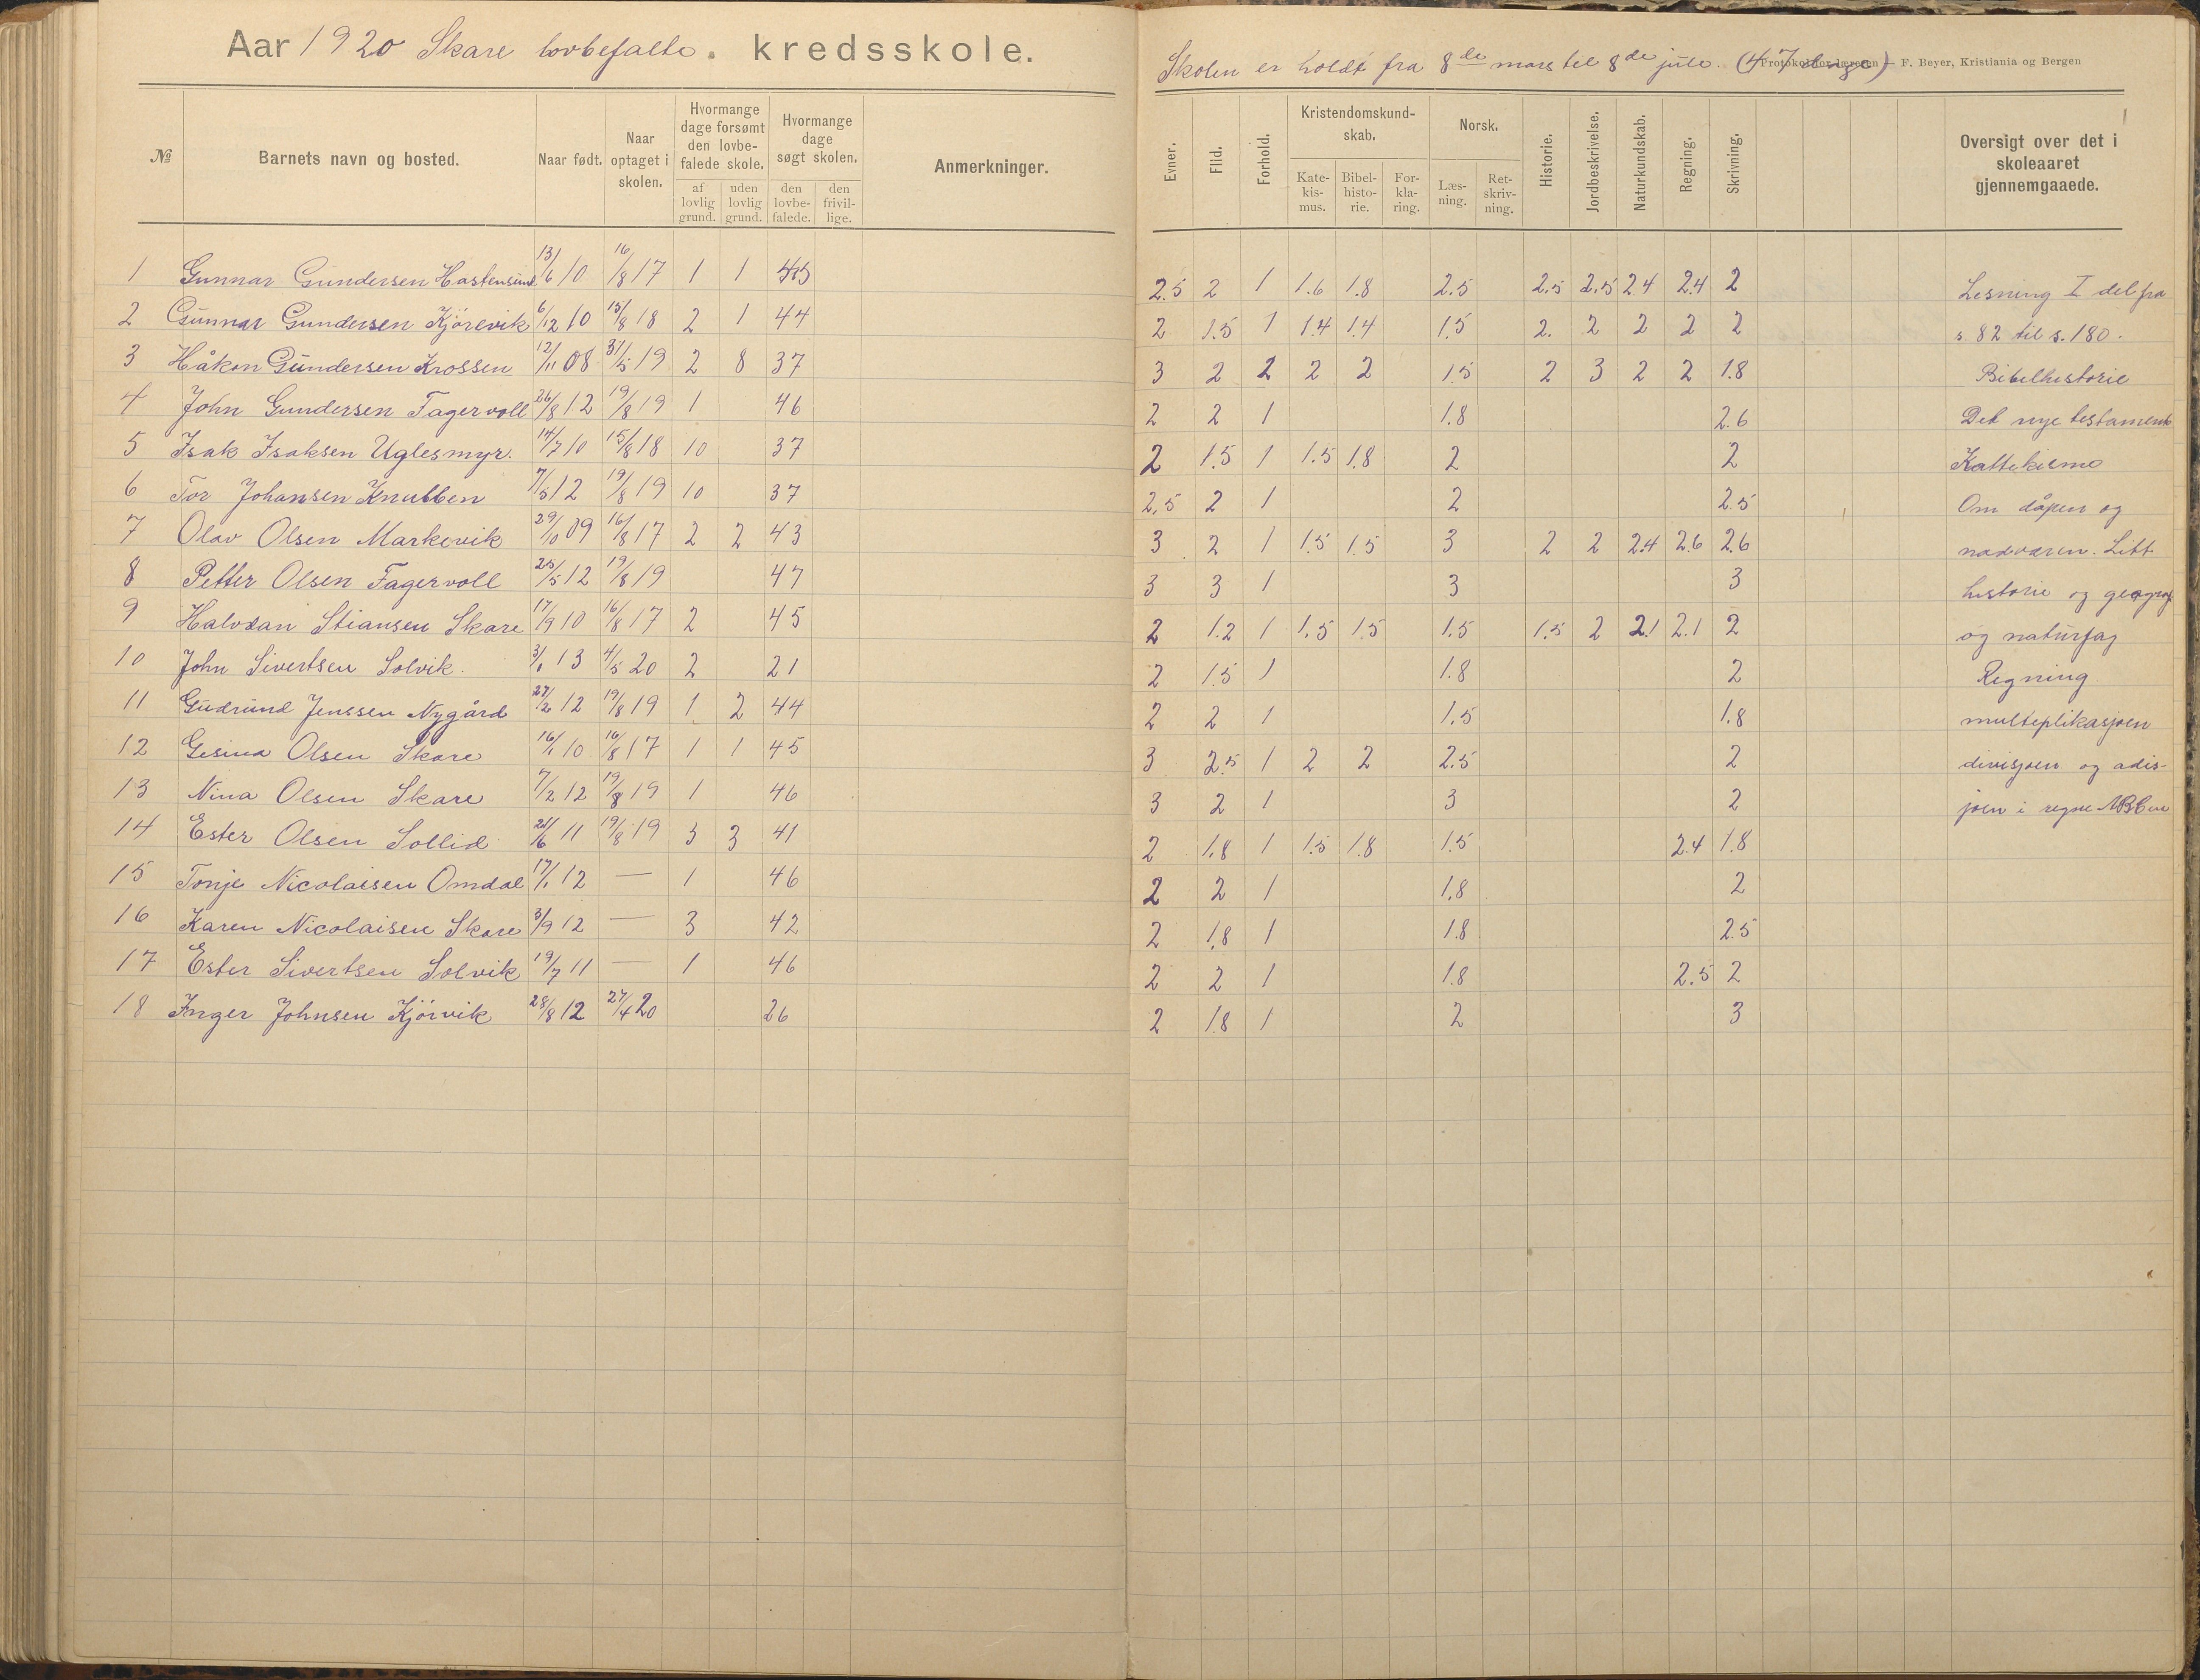 Aar 1920 Skare lovbefalte. kredsskole.
№ Barnets navn og bosted. Naar født. Naar optaget i skolen. Hvormange dage forsømt den lovbefalede skole. af lovlig grund. uden lovlig grund. Hvormange dage søgt skolen. den lovbefalede. den frivillige. Anmerkninger.
1 Gunnar Gundersen Hastensund 13/6 10 16/8 17 1 1 45
2 Gunnar Gundersen Kjörevik 6/12 10 15/8 18 2 1 44
3 Håkon Gundersen Krossen 12/11 08 31/5 19 2 8 37
4 John Gundersen Fagervoll 26/8 12 19/8 19 1 46
5 Isak Isaksen Uglesmyr. 14/7 10 15/8 18 10 37
6 Tor Johansen Knubben 7/5 12 19/8 19 10 37
7 Olav Olsen Markevik 29/10 09 16/8 17 2 2 43
8 Petter Olsen Fagervoll 25/5 12 19/8 19 47
9 Halvdan Stiansen Skare 17/9 10 16/8 17 2 45
10 John Sivertsen Solvik. 3/1 13 4/5 20 2 21
11 Gudrund Jenssen Nygård 27/2 12 19/8 19 1 2 44
12 Gesina Olsen Skare 16/1 10 16/8 17 1 1 45
13 Nina Olsen Skare 7/2 12 19/8 19 1 46
14 Ester Olsen Sollid 21/6 11 19/8 19 3 3 41
15 Tonje Nicolaisen Omdal 17/1 12 — 1 46
16 Karen Nicolaisen Skare 3/9 12 — 3 42
17 Ester Sivertsen Solvik 19/7 11 — 1 46
18 Inger Johnsen Kjörvik 28/8 12 27/4 20 26
Skolen er holdt fra 8de mars til 8de jule. (47 dage) F. Beyer, Kristiania og Bergen
Evner. Flid. Forhold. Kristendomskundskab. Katekismus. Bibelhistorie. Forklaring. Norsk. Læsning. Retskrivning. Historie. Jordbeskrivelse. Naturkundskab. Regning. Skrivning. Oversigt over det i skoleaaret gjennemgaaede.
2.5 2 1 1.6 1.8 2.5 2.5 2.5 2.4 2.4 2 Lesning I del fra
2 1.5 1 1.4 1.4 1.5 2. 2 2 2 2 s. 82 til s. 180.
3 2 2 2 2 1.5 2 3 2 2 1.8 Bibelhistorie
2 2 1 1.8 2.6 Det nye testamente
2 1.5 1 1.5 1.8 2 2 Kattekisme
2,5 2 1 2 2.5 Om dåpen og
3 2 1 1.5 1.5 3 2 2 2.4 2.6 2.6 nadværen. Litt
3 3 1 3 3 historie og geograf
2 1.2 1 1.5 1.5 1.5 1.5 2 2.1 2.1 2 og naturfag
2 1.5 1 1.8 2 Regning
2 2 1 1.5 1.8 multeplikasjoen
3 2.5 1 2 2 2.5 2 divisjoen og adis-
3 2 1 3 2 joen i regne ABCen
2 1.8 1 1.5 1.8 1.5 2.4 1.8
2 2 1 1.8 2
2 1.8 1 1.8 2.5
2 2 1 1.8 2.5 2
2 1.8 1 2 3